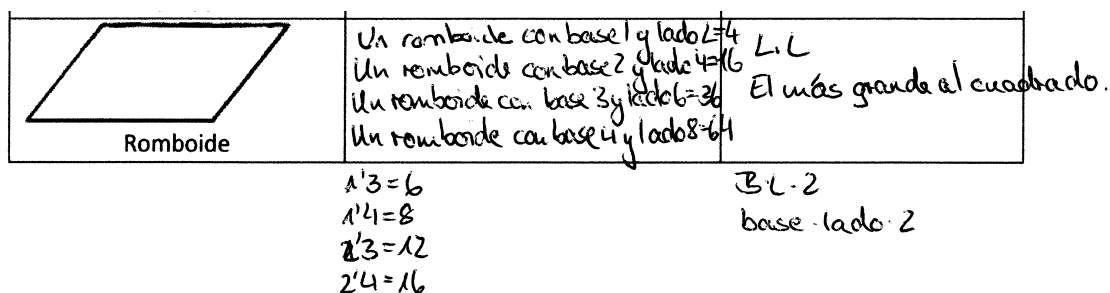 Romboide
Un romboide con base 1 y lado 2=4
Un romboide con base 2 y lado 4=16
Un romboide con base 3 y lado 6=36
Un romboide con base 4 y lado 8=64
L.L
El más grande al cuadrado.
1'3=6
1'4=8
2'3=12
2'4=16
B·L·2
base·lado·2